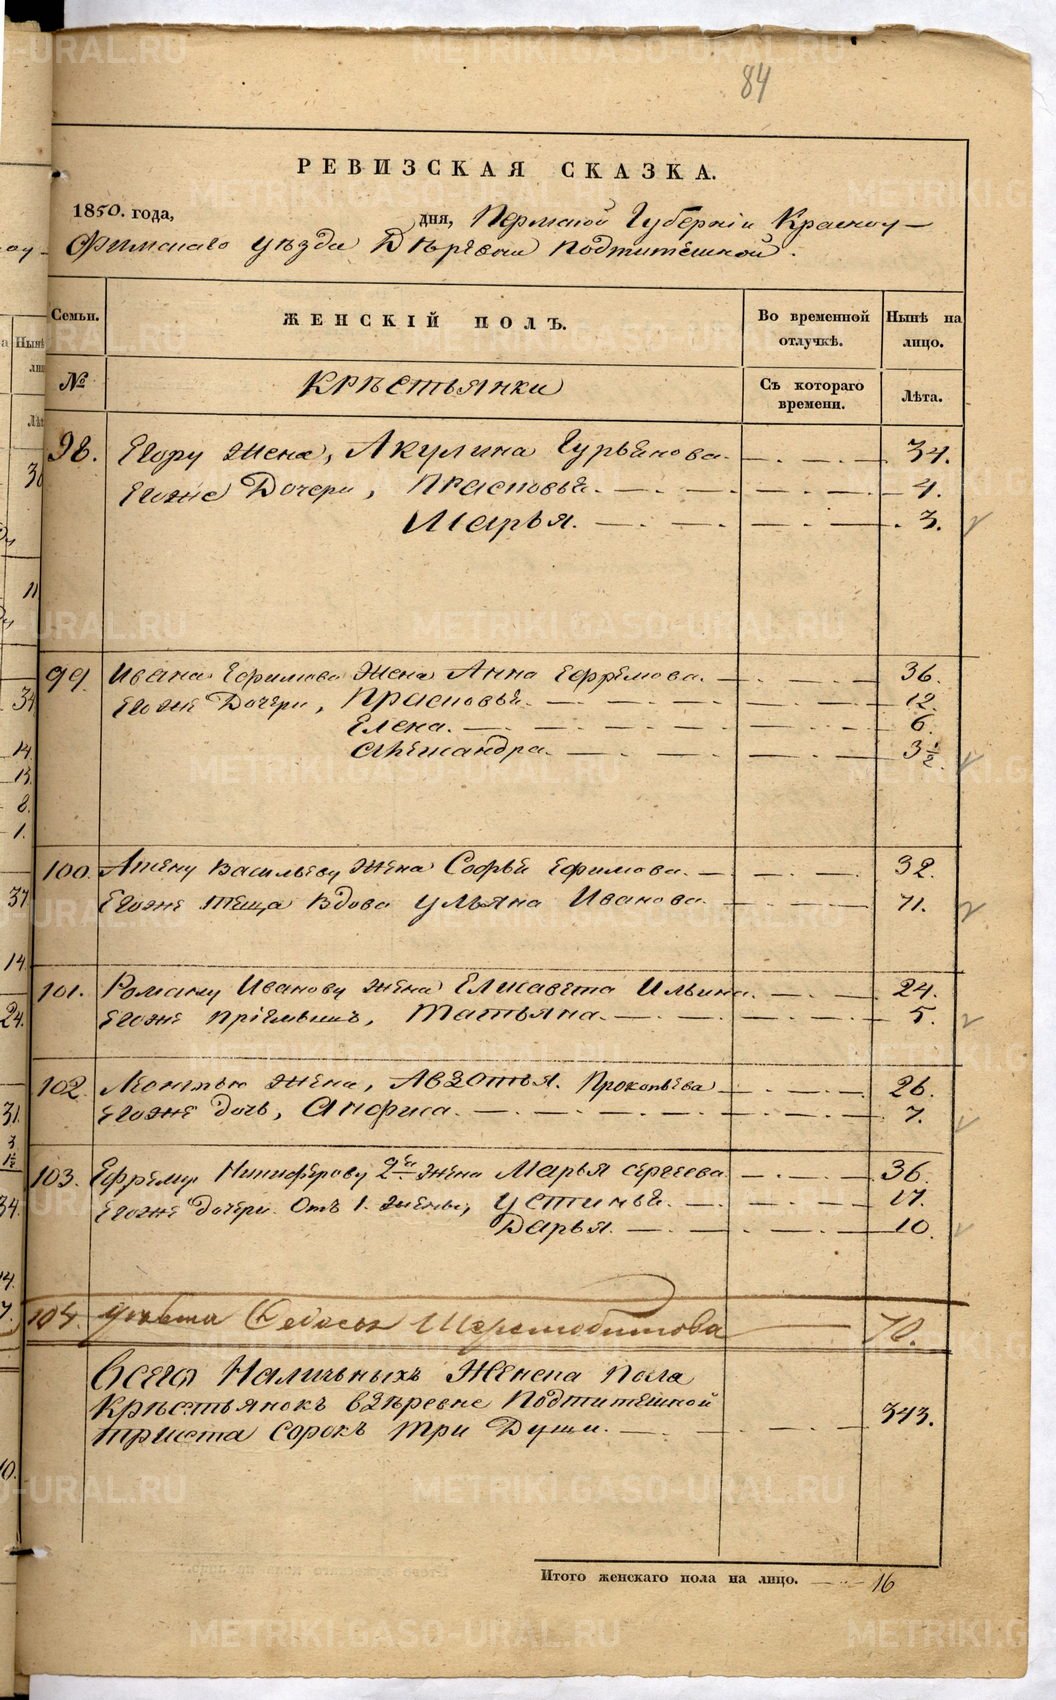 84
РЕВИЗСКАЯ СКАЗКА.
1850. года, дня, Пермской Губерніи Красноу-
фимскаго уѣзда Дѣревни Подтитешной.
Семьи. ЖЕНСКІЙ ПОЛЪ. Во временной отлучкѣ. Нынѣ на лицо.
№ Крѣстьянки Съ котораго времени. Лѣта.
98. Егору жена, Акулина Гурьянова. 34.
Егоже Дочери, Прасковья. 4.
Марья. 3.
99. Ивана Ефимова Жена Анна Ефремова. 36.
Егоже Дочери, Прасковья. 12.
Елена. 6.
Александра. 3 1/2.
100. Васильеву жена Софья Ефимова. 32.
Егоже теща Вдова Ульяна Иванова. 71.
101. Роману Иванову жена Елисавета Ильина. 24.
Егоже пріемышъ, Татьяна. 5.
102. Леонтью жена, Авдотья. Прокопьева 26.
Егоже дочь, Анфиса. 7.
103. Ефрему Никифорову 2я жена Марья Сергеева. 36.
Егоже дочери Отъ 1. жены, Устинья. 17.
Дарья. 10.
104.
Всего Наличныхъ Женска Пола
Крѣстьянокъ в дѣревне Подтитешной
триста сорокъ три Души. 343.
Итого женскаго пола на лицо. 16
METRIKI.GASO-URAL.RU